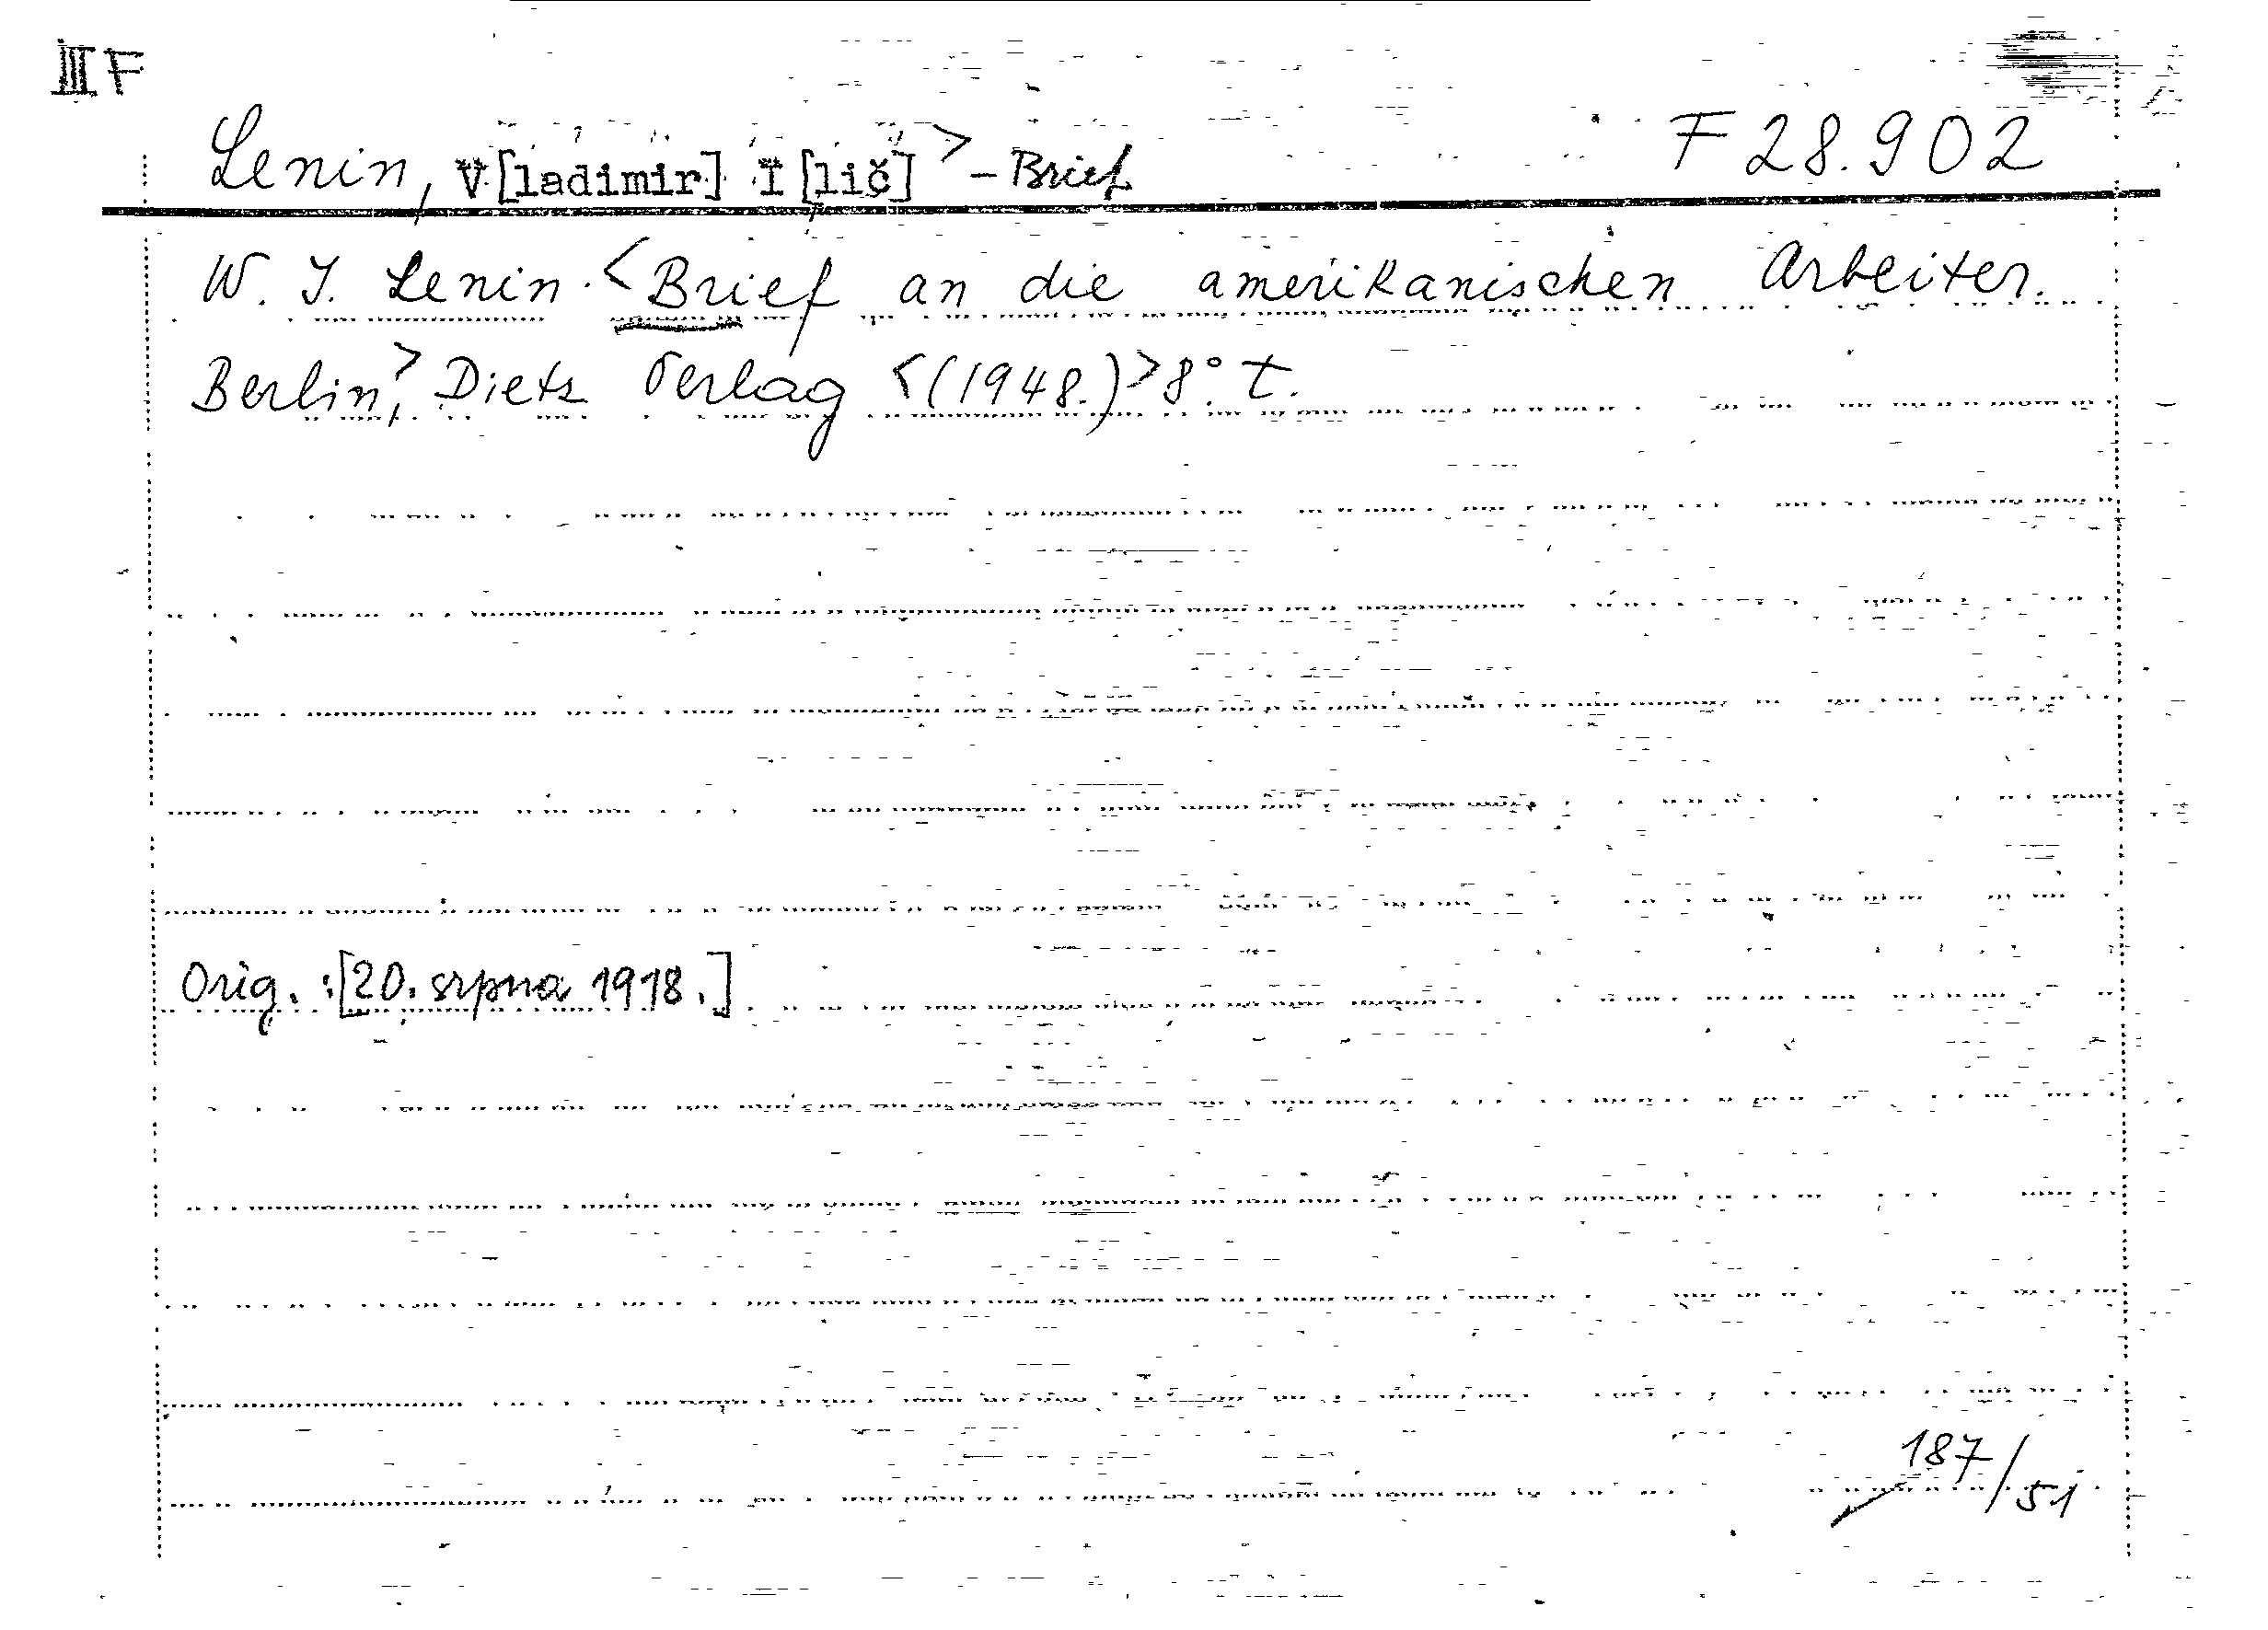 III F
Lenin, V[ladimir] I[lič] > - Brief F 28.902
W. I. Lenin. <Brief an die amerikanischen Arbeiter.
Berlin,> Dietz Verlag <(1948.)> 8°. t.
Orig. :[20. srpna 1918.]
187/51